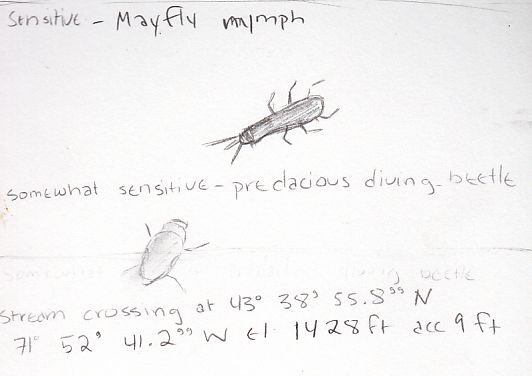 Sensitive - Mayfly nymph
somewhat sensitive - predacious diving-beetle
Somewhat diving beetle
stream crossing at 43° 38' 55.8" N
71° 52' 41.2" W El 1428 ft acc 9 ft